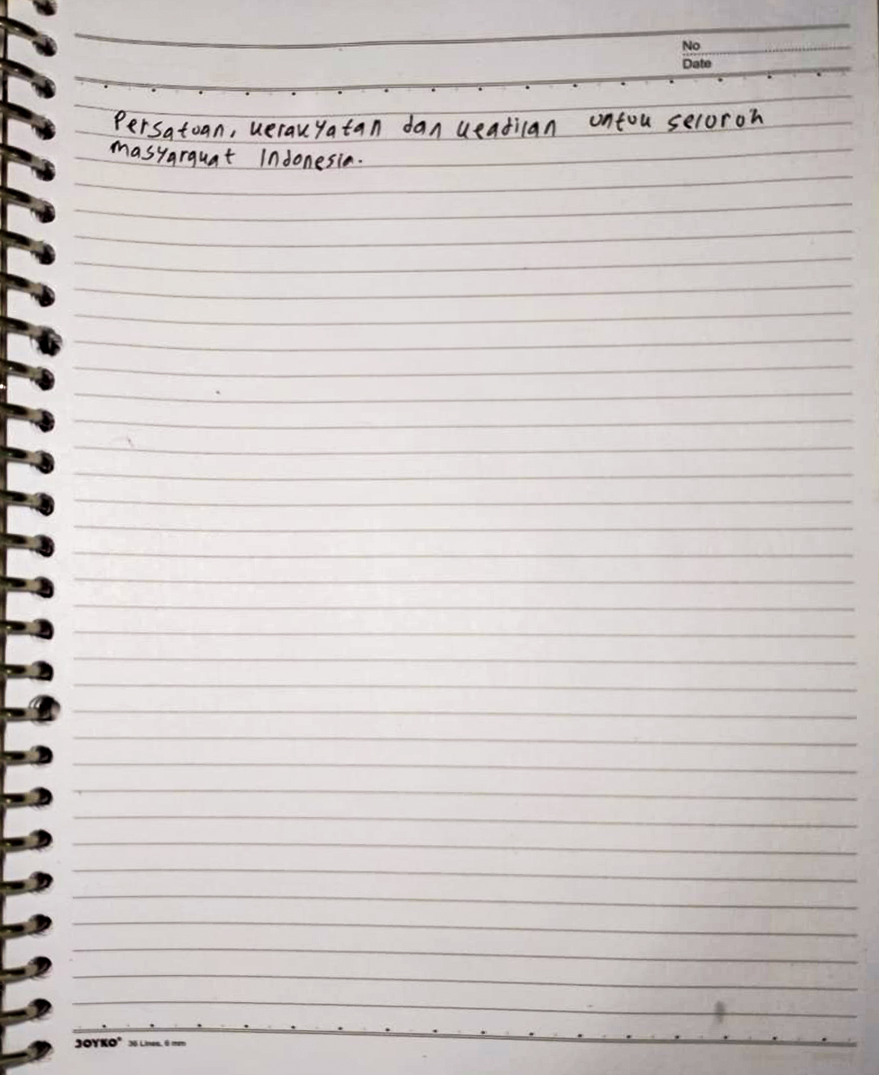 No
Date
Persatuan, kerakyatan dan keadilan untuk seluruh
masyarakat Indonesia.
JOYKO® 36 Lines, 8 mm